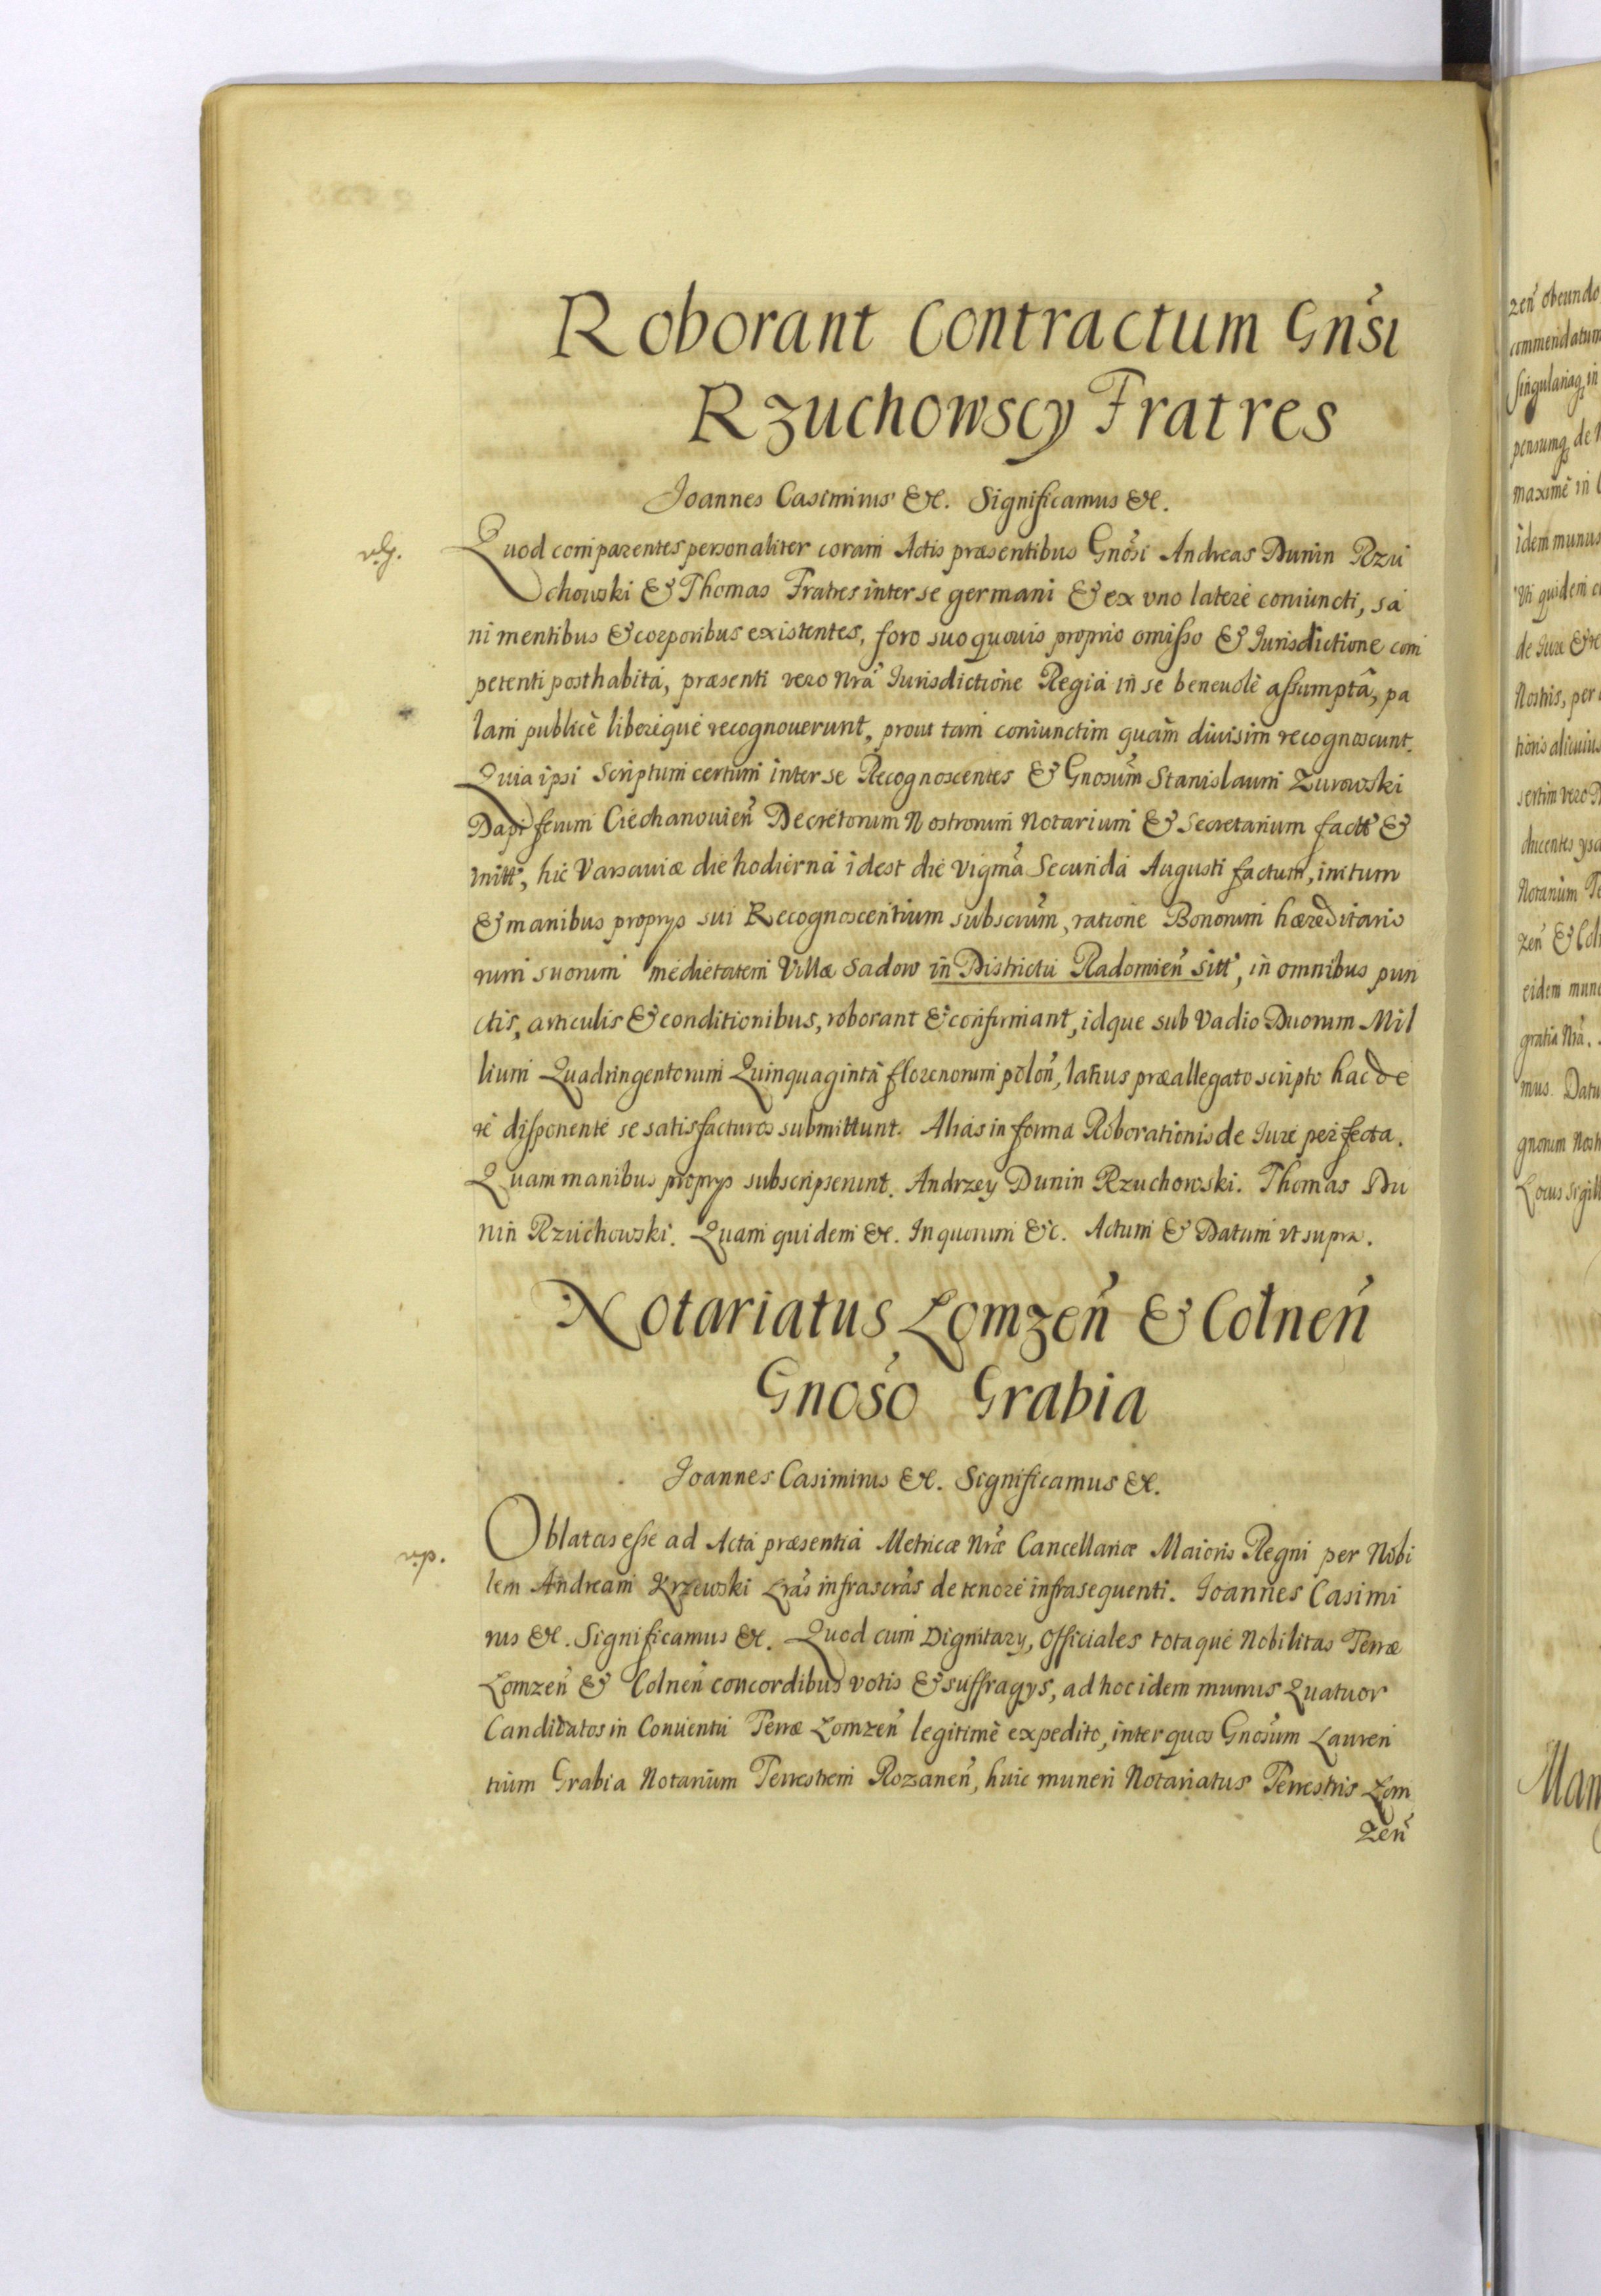 Roborant Contractum Gnſi
Rzuchowscy Fratres
Joannes Casimirus &c. Significamus &c.
Quod comparentes personaliter coram Actis præsentibus Gnosi Andreas Dunin Rzu
chowski & Thomas Fratres inter se germani & ex uno latere coniuncti, sa
ni mentibus & corporibus existentes, foro suo quovis proprio omiſso & Jurisdictione com
petenti posthabitâ, præsenti vero Nrâ Jurisdictione Regiâ in se benevolè aſsumptâ, pa
lam publicè liberèque recognoverunt, prout tam coniunctim quàm divisim recognoscunt.
Quia ipsi Scriptum certum inter se Recognoscentes & Gnosum Stanislaum Zurowski
Dapiferum Ciechanovieñ Decretorum Nostrorum Notarium & Secretarium factt &
initt, hic Varsaviæ die hodiernâ idest die vigma Secunda Augusti factum, initum
& manibus proprys sui Recognoscentium subscrum, ratione Bonorum hæreditario
rum suorum medietatem Villæ Sadow in Districtu Radomieñ sitt, in omnibus pun
ctis, articulis & conditionibus, roborant & confirmant, idque sub Vadio Duorum Mil
lium Quadringentorum Quinquaginta florenorum poloñ, latius præallegato scripto hac de
re disponente se satisfacturos submittunt. Alias in forma Roborationis de Jure perfecta.
Quam manibus proprys subscripserunt. Andrzey Dunin Rzuchowski. Thomas Du
nin Rzuchowski. Quam quidem &c. In quorum &c. Actum & Datum ut supra.
Notariatus Lomzeñ & Colneñ
Gnoso Grabia
Joannes Casimirus &c. Significamus &c.
Oblatas eſse ad Acta præsentia Metricæ Nræ Cancellariæ Maioris Regni per Nobi
lem Andream Krzewski Lras infrascras de tenore infrasequenti. Joannes Casimi
rus &c. Significamus &c. Quod cum Dignitary, Officiales totaque Nobilitas Terræ
Lomzeñ & Colneñ concordibus votis & suffragys, ad hoc idem munus Quatuor
Candidatos in Conventu Terræ Lomzeñ legitimè expedito, inter quos Gnosum Lauren
tium Grabia Notarium Terrestrem Rozaneñ, huic muneri Notariatus Terrestris Lom
zeñ